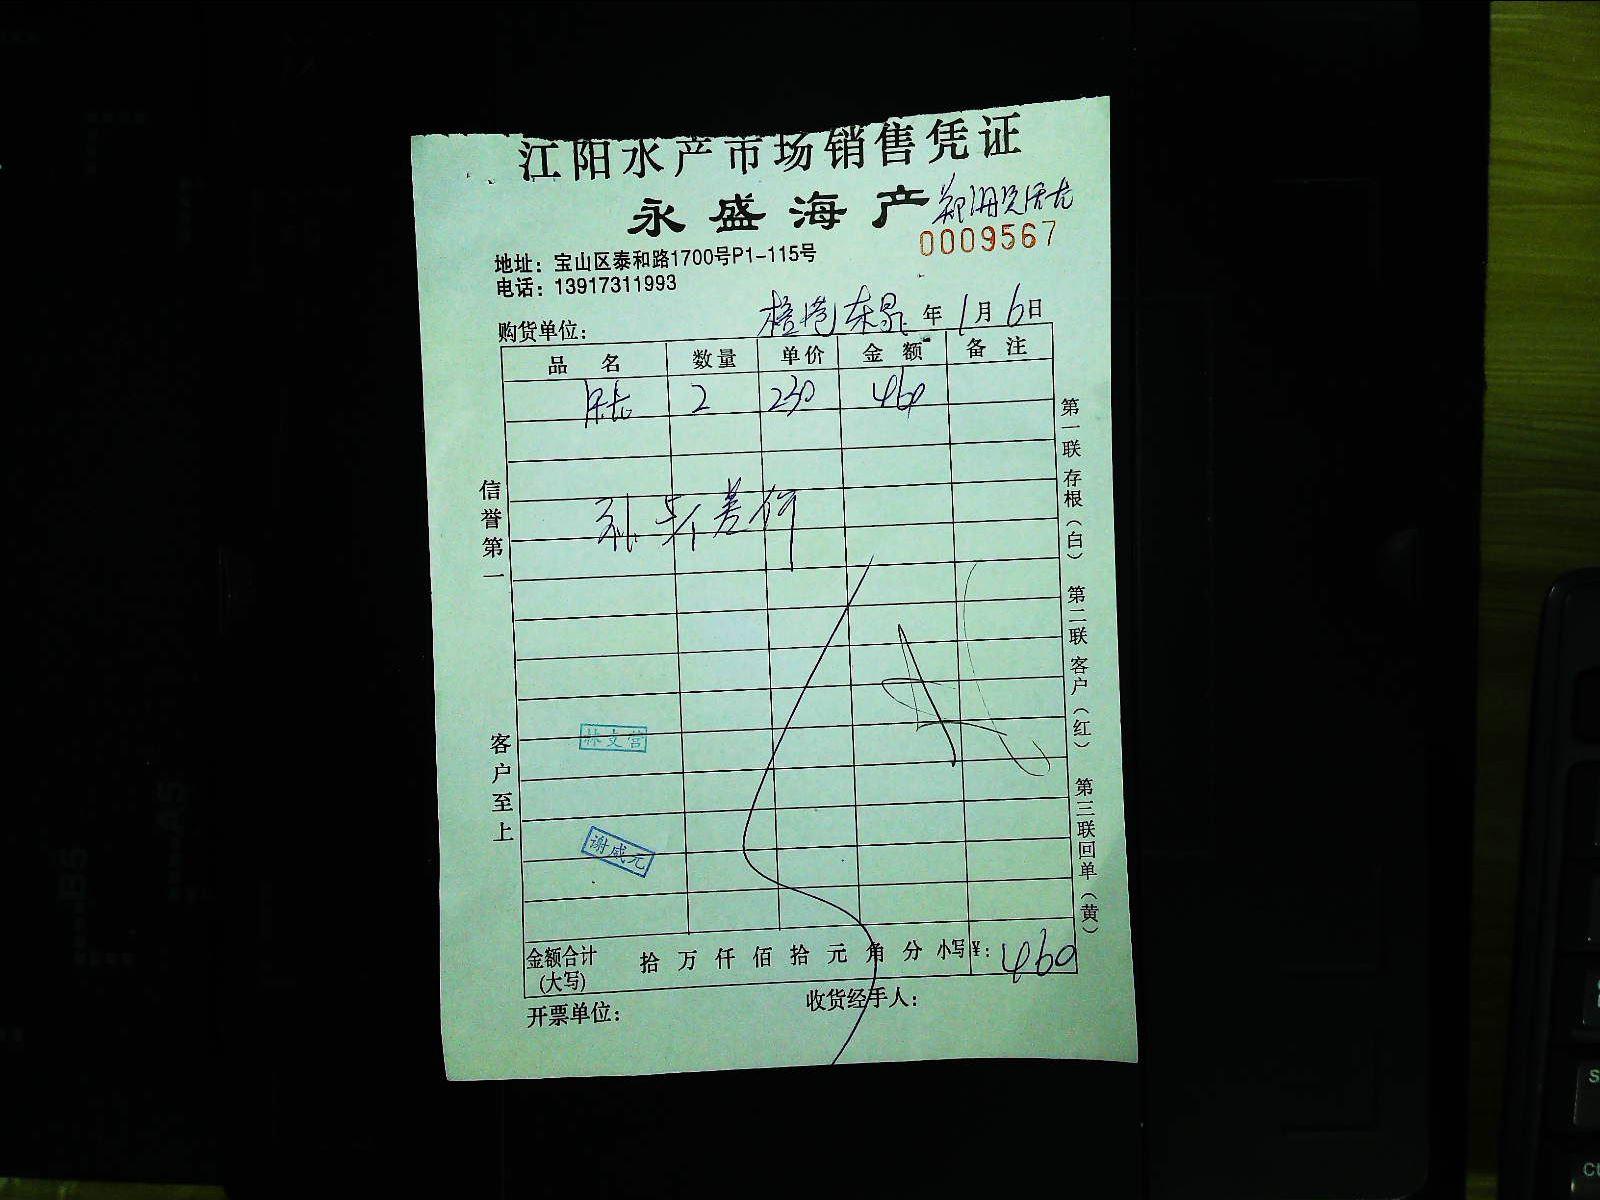 江阳水产市场销售凭证
永盛海产
0009567
地址：宝山区泰和路1700号P1-115号
电话：13917311993
购货单位： 年 1月6日
品名 数量 单价 金额 备注
2 230 460
补 差价
信誉第一
客户至上
第一联存根（白） 第二联客户（红） 第三联回单（黄）
林文营
谢威元
金额合计(大写) 拾 万 仟 佰 拾 元 角 分 小写¥：460
开票单位： 收货经手人：